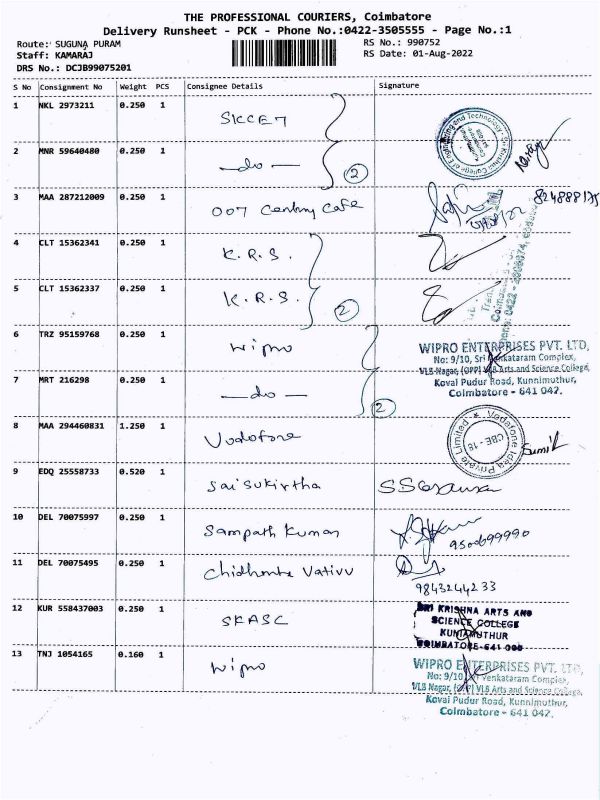 THE PROFESSIONAL COURIERS, Coimbatore
Delivery Runsheet - PCK - Phone No.:0422-3505555 - Page No.:1
Route: SUGUNA PURAM
RS No.: 990752
Staff: KAMARAJ
RS Date: 01-Aug-2022
DRS No.: DCJB99075201
S No Consignment No Weight PCS Consignee Details Signature
1 NKL 2973211 0.250 1 SKCET
2 MNR 59640480 0.250 1 —do—
2
3 MAA 287212009 0.250 1 007 Century Cafe
4 CLT 15362341 0.250 1 K.R.S.
5 CLT 15362337 0.250 1 K.R.S.
2
6 TRZ 95159768 0.250 1 Wipro
WIPRO ENTERPRISES PVT. LTD,
No: 9/10, Sri Venkataram Complex,
VLB Nagar, (OPP) VLB Arts and Science College,
Kovai Pudur Road, Kunnimuthur,
Coimbatore - 641 042.
7 MRT 216298 0.250 1 —do—
2
8 MAA 294460831 1.250 1 Vodofone
Vodafone Idea Private Limited
CBE - 18
Sunil
9 EDQ 25558733 0.520 1 Sai Sukirtha
10 DEL 70075997 0.250 1 Sampath Kumar
9500699990
11 DEL 70075495 0.250 1 Vativu
9843244233
12 KUR 558437003 0.250 1 SKASC
SRI KRISHNA ARTS AND
SCIENCE COLLEGE
KUNIAMUTHUR
COIMBATORE-641 008
13 TNJ 1054165 0.160 1 Wipro
WIPRO ENTERPRISES PVT. LTD,
No: 9/10, Sri Venkataram Complex,
VLB Nagar, (OPP) VLB Arts and Science College,
Kovai Pudur Road, Kunnimuthur,
Coimbatore - 641 042.